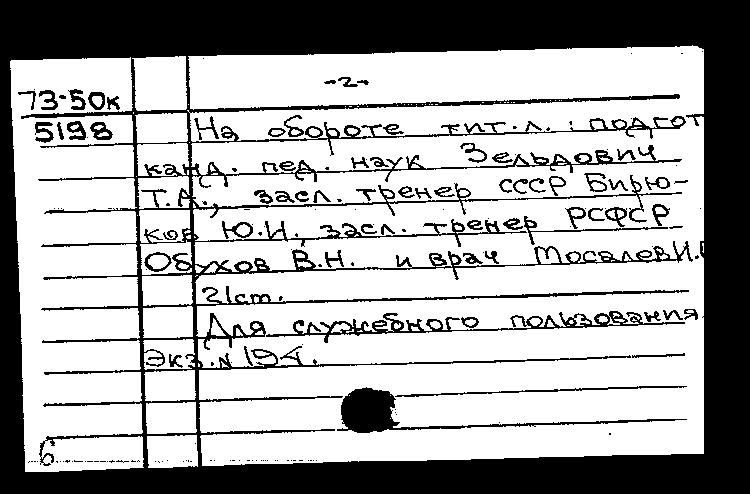 -2-
73-50к
5198
На обороте тит.л.: подгот
канд. пед. наук Зельдович
Т.А., засл. тренер СССР Бирю-
ков Ю.И., засл. тренер РСФСР
Обухов В.Н. и врач Мосалев И.
21см.
Для служебного пользования.
Экз.N 194.
6